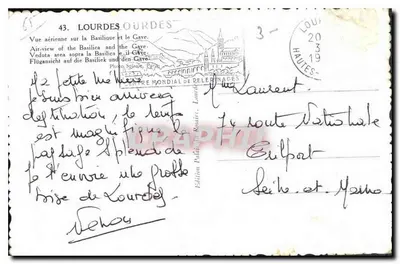 43. LOURDES
Vue aérienne sur la Basilique et le Gave.
Air-view of the Basilica and the Gave.
Veduta area sopra la Basilica e il Gave.
Flugansicht auf die Basilika und den Gave.
LOURDES
MONDIAL DE PELERINAGES
3-
20
3
19
HAUTES-
petite
suis bien arrivée
destination. le temps
est magnifique le
paysage splendide
je t'envoie une grosse
bise de Lourdes
Mme Laurent.
74 route Nationale
Seine et Marne